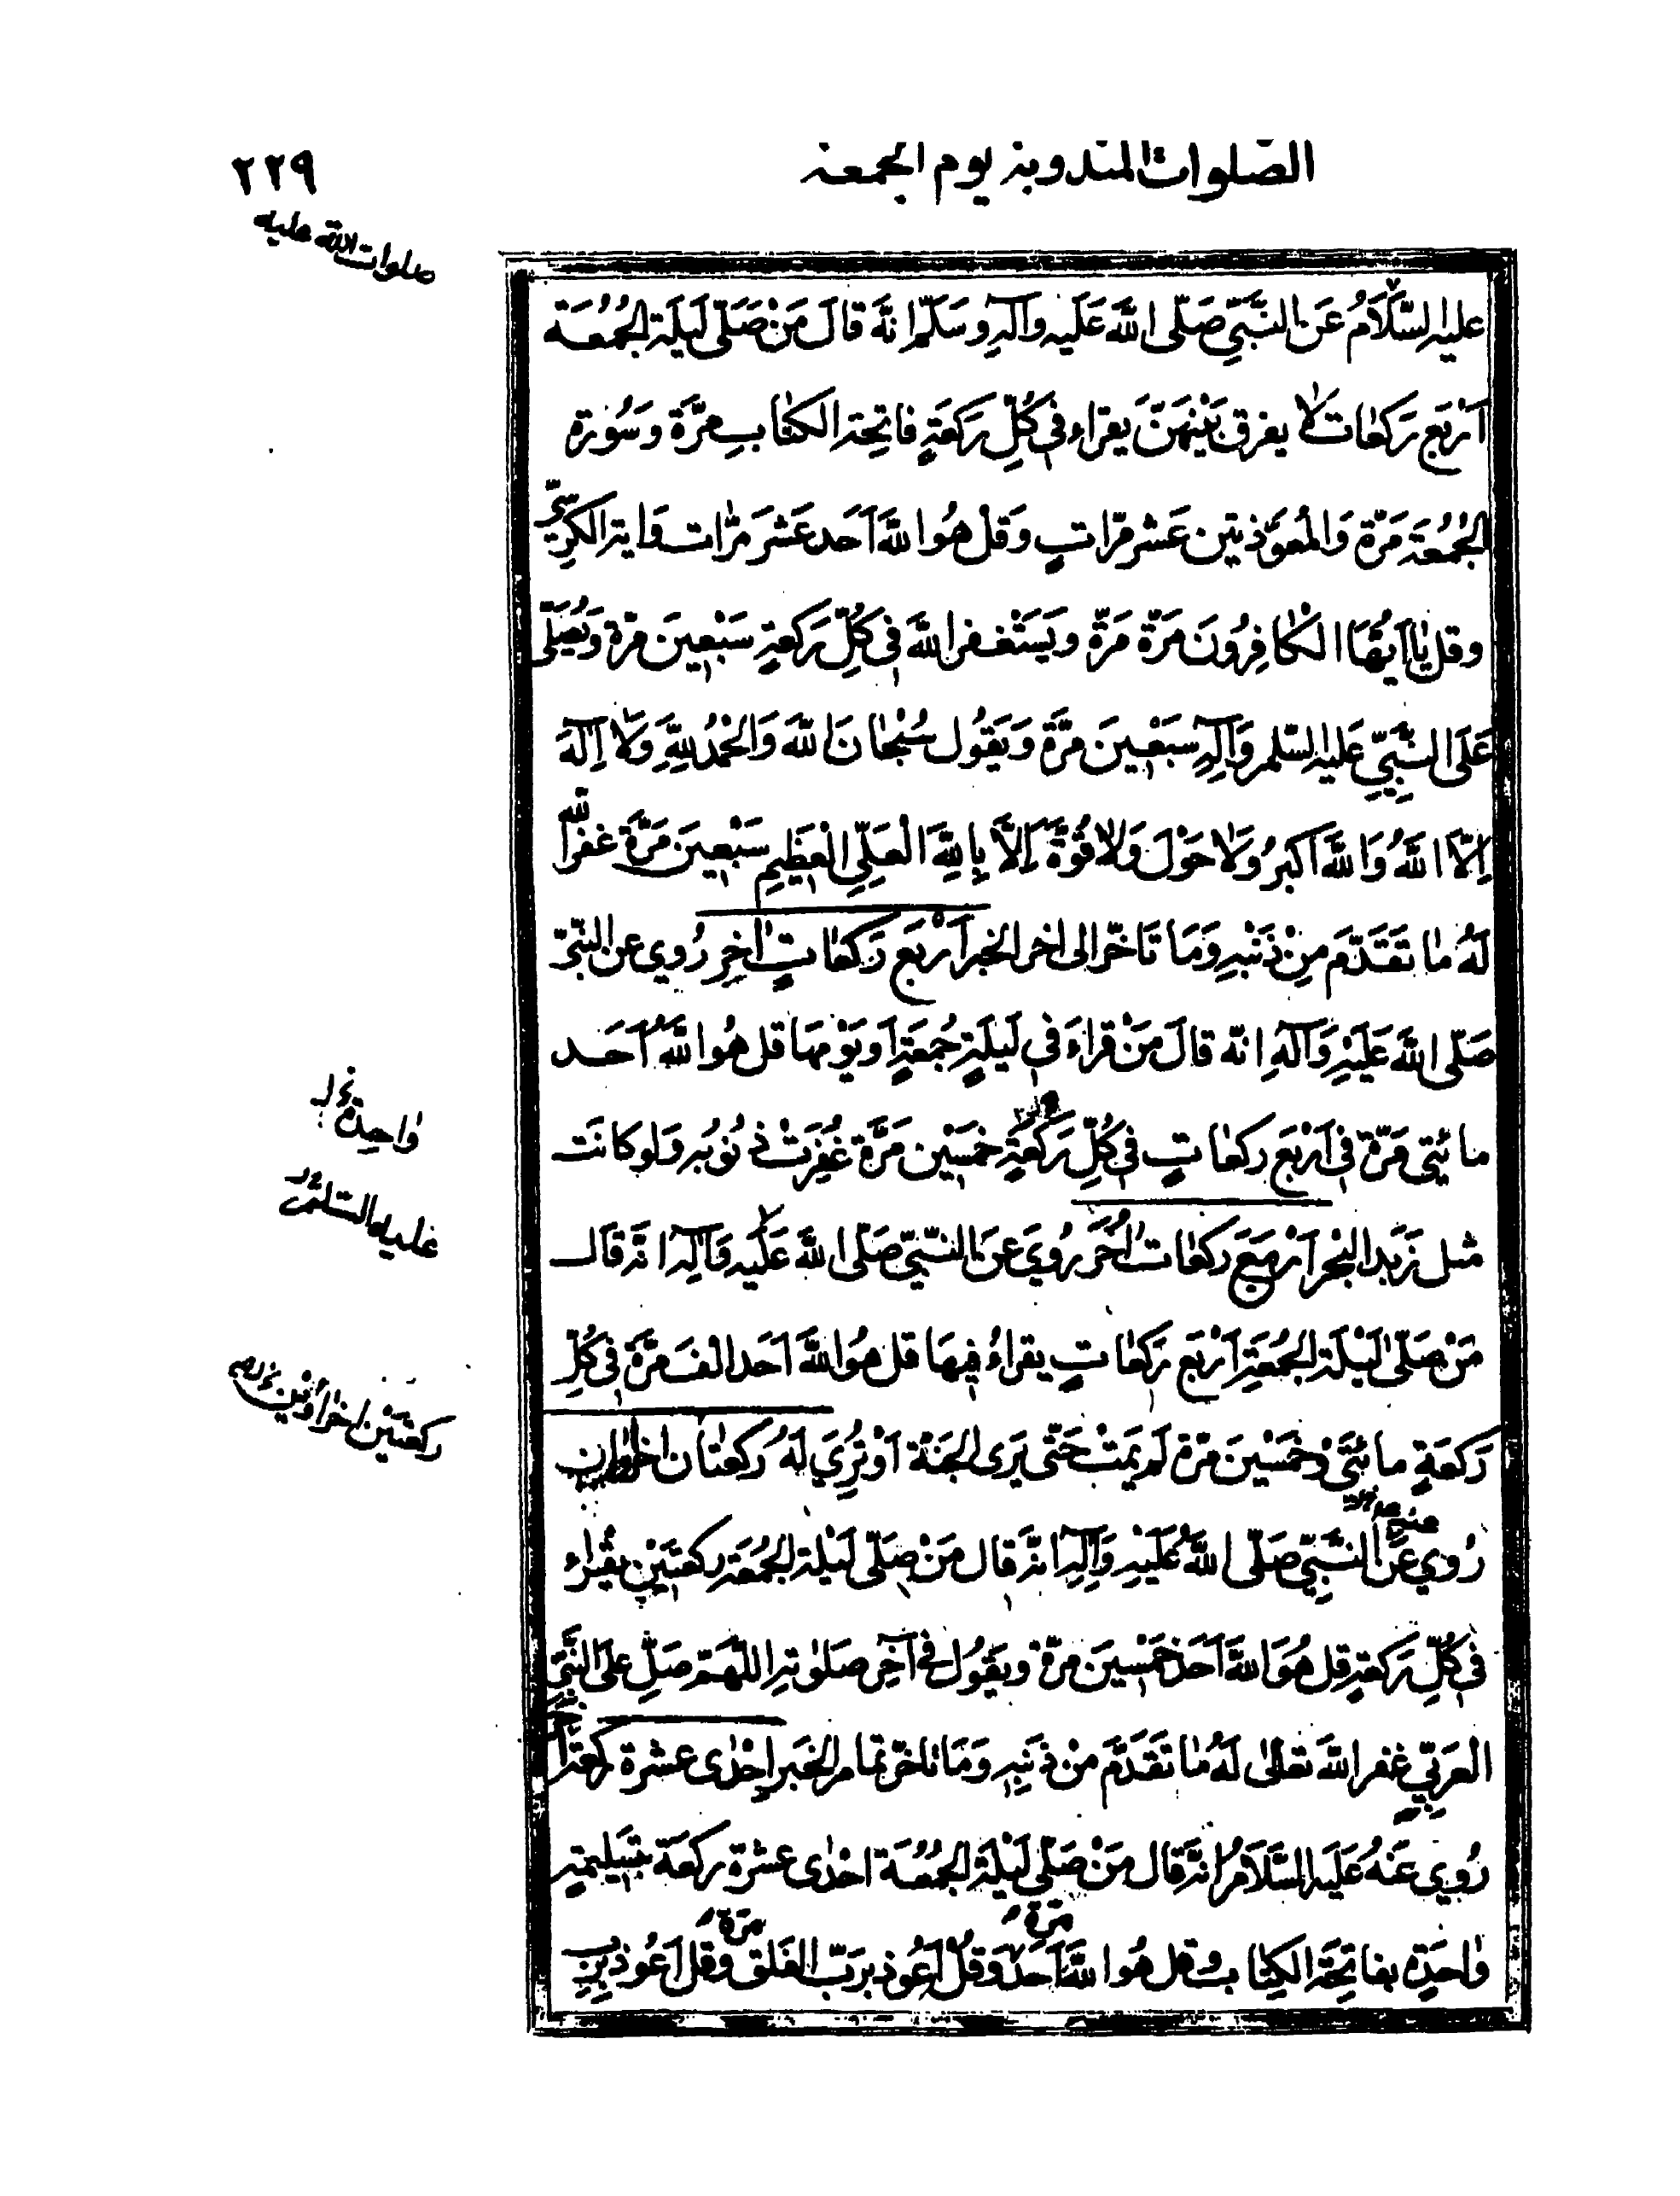 الصّلوات المندوبة يوم الجمعة
٢٢٩
صلوات اللّه عليه
عليه السَّلَامُ عَنِ النَّبِيِّ صَلَّى اللَّهُ عَلَيه وآلِهِ وسَلَّم انَّهُ قَالَ مَنْ صَلَّى لَيلَة الجُمُعَة
اَرْبَع رَكعات لا يفرق بَيْنهنّ يقراء في كُلِّ رَكعَةٍ فاتِحَة الكتابِ مرَّة وَسُورة
الجُمُعَة مَرّة وَالمُعوّذتين عَشر مرّاتٍ وَقل هُوَ اللَّهُ اَحَد عَشَر مرّات وَاية الكرسِيّ
وقل يا اَيُّهَا الكافِرُونَ مَرّة مَرّة ويَستَغفر اللَّهَ في كُلِّ رَكعةٍ سَبْعِينَ مرّة وَيُصَلّى
عَلَى النَّبِيِّ عَلَيهِ السّلم وَآلِهِ سَبْعِينَ مَرَّة وَيَقُول سُبْحَانَ اللَّهِ وَالحَمْدُ لِلَّهِ وَلَا اِلَهَ
اِلَّا اللَّهُ وَاللَّهُ اَكبرُ وَلَا حَوْلَ وَلَا قُوَّةَ اِلَّا بِاللَّهِ الْعَلِيِّ الْعَظِيمِ سَبْعِينَ مَرَّة غفر اللّه
لَهُ ما تَقَدَّمَ مِنْ ذَنْبِهِ وَمَا تَاخّر الى اخر الخبر اَرْبَع رَكعاتٍ اُخر رُوي عن النّبيّ
صَلَّى اللَّهُ عَلَيْهِ وَآلِهِ انّه قالَ مَنْ قراءَ في لَيلَةِ جُمعَةٍ اَو يَوْمهَا قل هُوَ اللَّهُ اَحَد
مائتي مَرّة في اَرْبَع ركعاتٍ في كُلِّ رَكْعَةٍ خمسِين مَرَّة غُفِرَتْ ذنُوبُه وَلو كانَت
واحِدة
مثل زَبَد البَحْر اَرْبَع ركعات اُخَر رُوِيَ عَنِ النَّبِيّ صَلَّى اللَّهُ عَلَيه وَآلِهِ انَّه قَالَ
عليه السّلم
مَنْ صَلَّى لَيْلَة الجُمعَةِ اَرْبَع رَكعاتٍ يقراءُ فِيهَا قل هُوَ اللَّهُ اَحَد الفَ مَرَّة في كُلِّ
رَكعَةٍ مائتَي وخَمْسِينَ مرّة لَم يَمُتْ حَتّى يَرى الجَنَّة اَوْ تُرِيَ لَهُ رَكعتان اخراوان
ركعتَين اخراوَين
رُوي عَنِ النَّبِيّ صَلَّى اللَّهُ عَلَيْهِ وَآلِهِ انّه قال مَنْ صَلَّى لَيْلَة الجُمُعَة ركعتَيْنِ يقراء
في كُلِّ رَكعةٍ قل هُوَ اللَّهُ اَحَد خَمْسِينَ مرّة ويَقُول في آخِر صَلوتِه اللّهمّ صَلِّ على النَّبِيِّ
العَرَبِيّ غفر اللَّهُ تعالى لَهُ ما تَقَدَّمَ من ذنبِهِ وَمَا تاخّر تمام الخَبر اِحْدى عشرة رَكعة
رُوي عَنهُ عَلَيهِ السَّلَامُ انَّه قال مَنْ صَلَّى لَيْلَة الجُمُعَة احْدى عشرة ركعَة بتَسليمةٍ
واحَدةٍ بفاتِحَة الكِتابِ وقل هُوَ اللَّهُ اَحَد مَرّة وَقل اَعُوذ برَبّ الفَلق مَرّة وقل اَعُوذ برَبّ